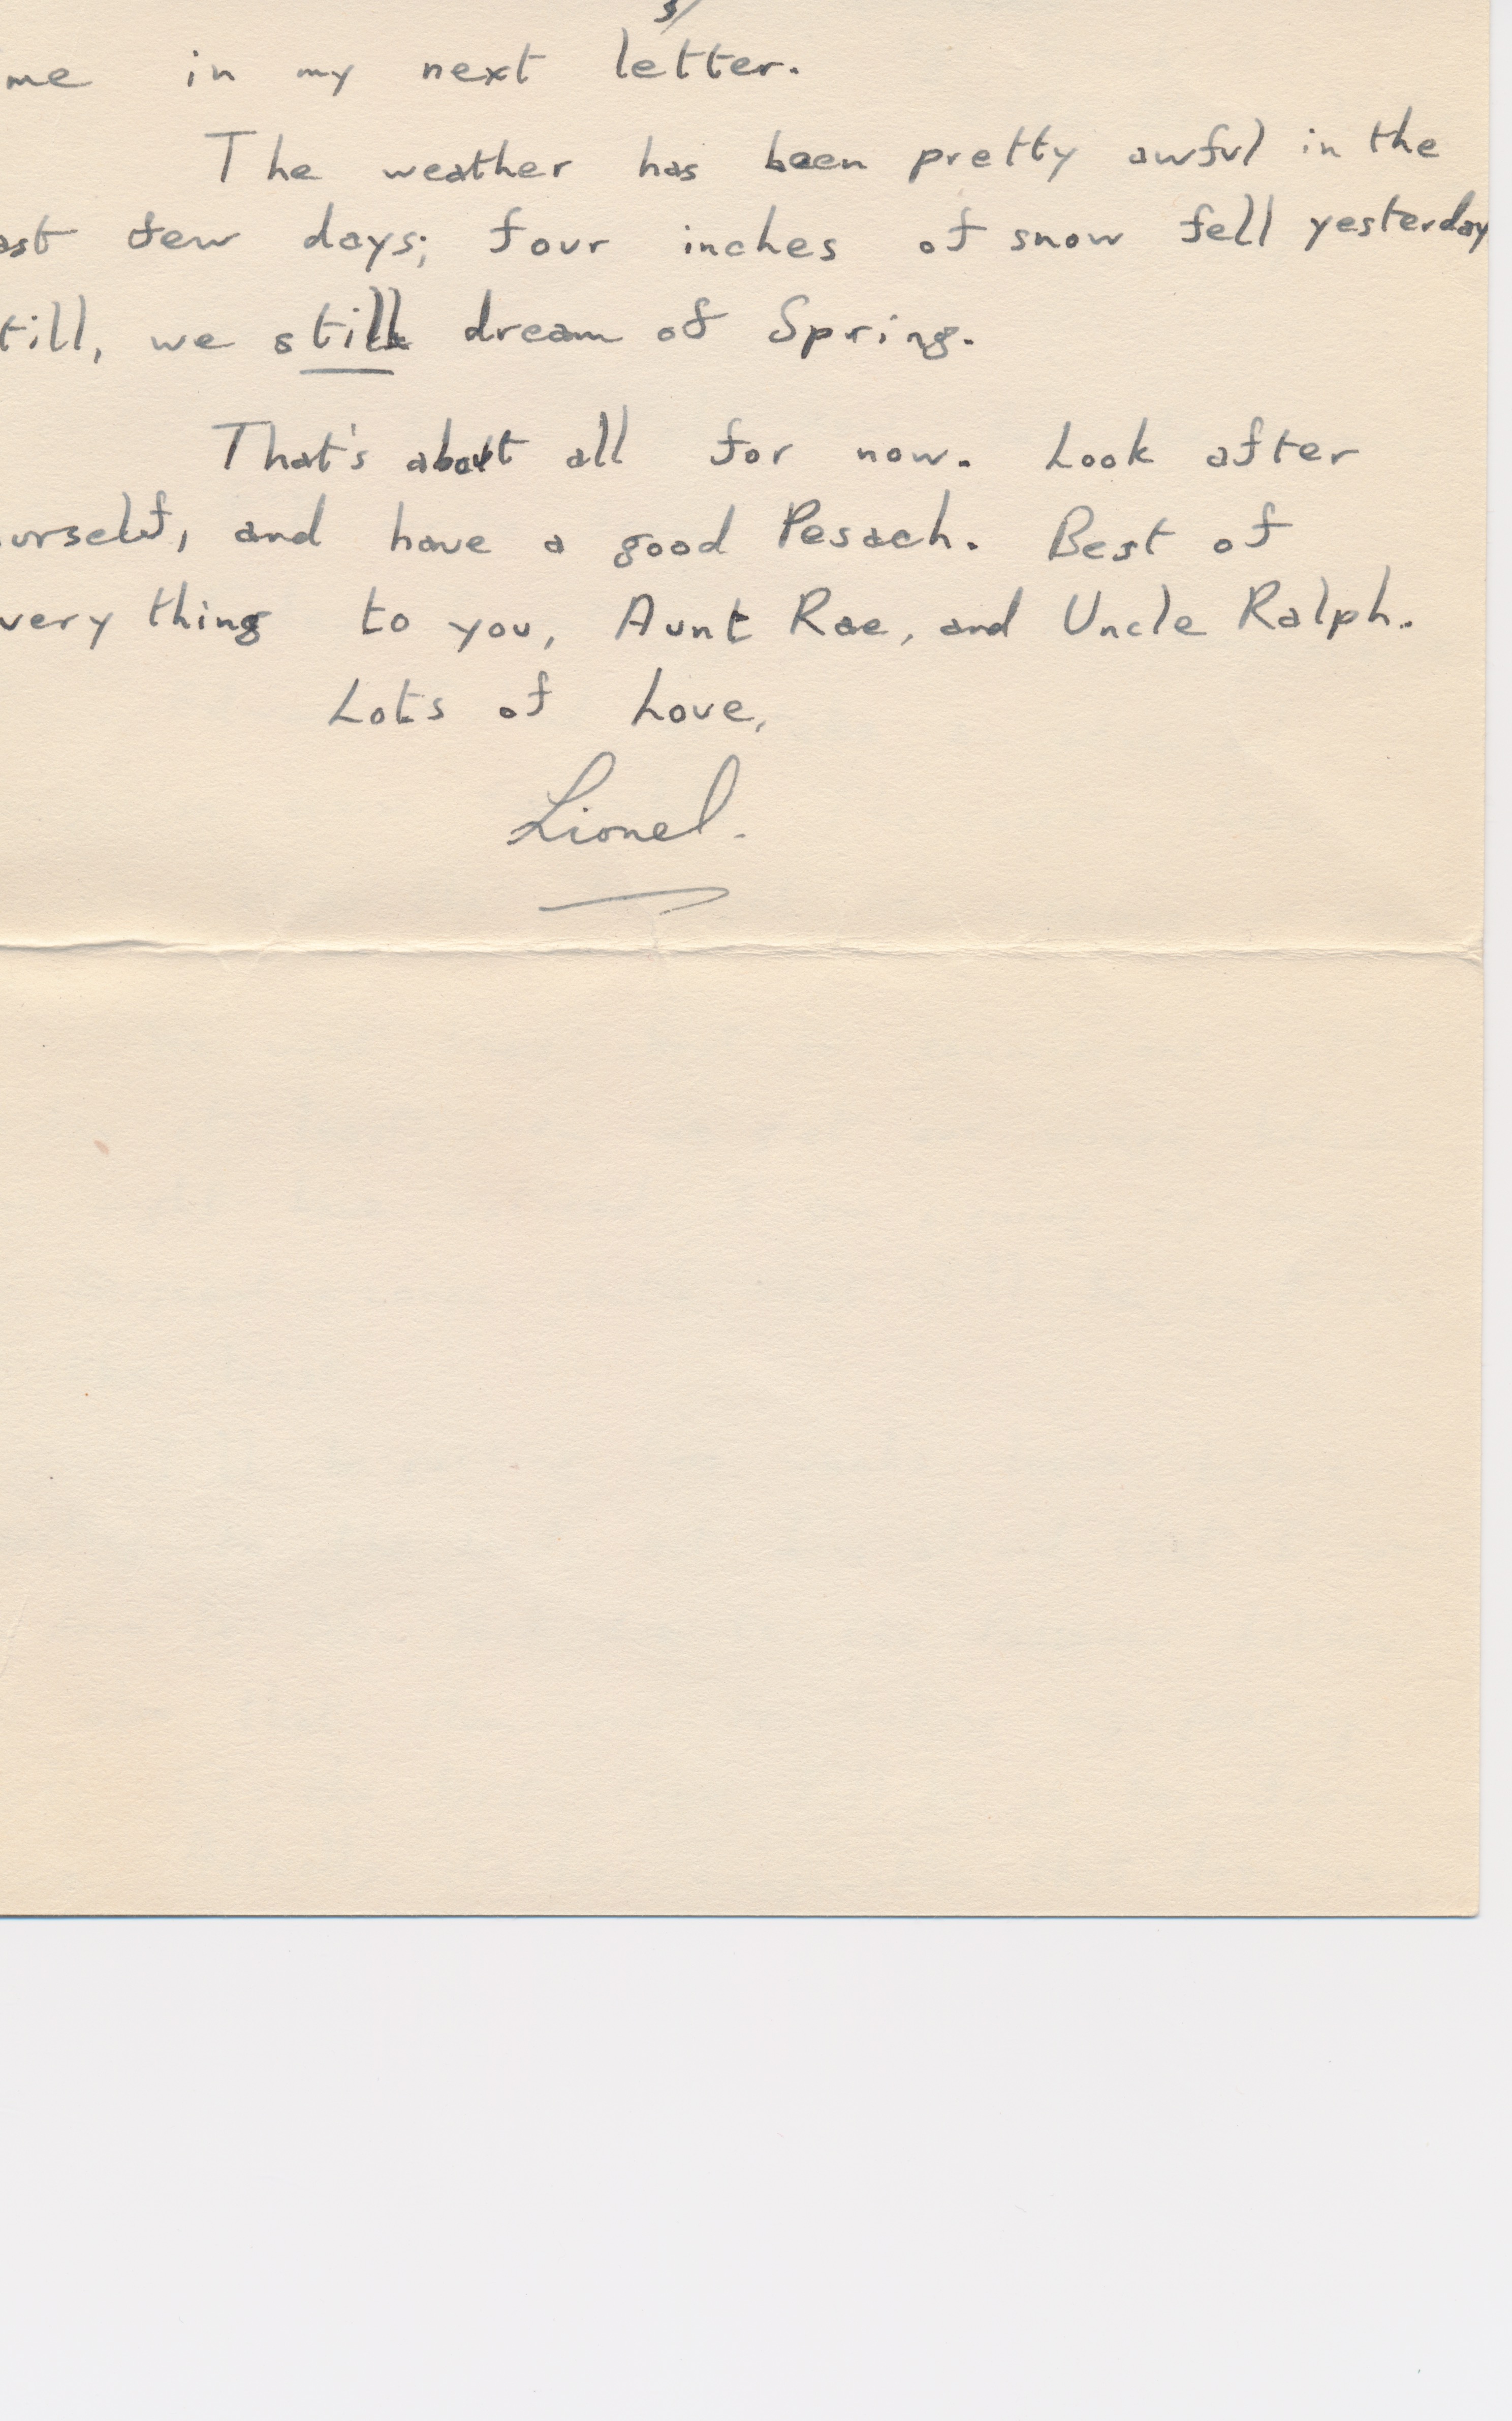 me in my next letter.
The weather has been pretty awful in the
ast few days; four inches of snow fell yesterday
till, we still dream of Spring.
That's about all for now. Look after
urself, and have a good Pesach. Best of
very thing to you, Aunt Rae, and Uncle Ralph.
Lots of Love,
Lionel.